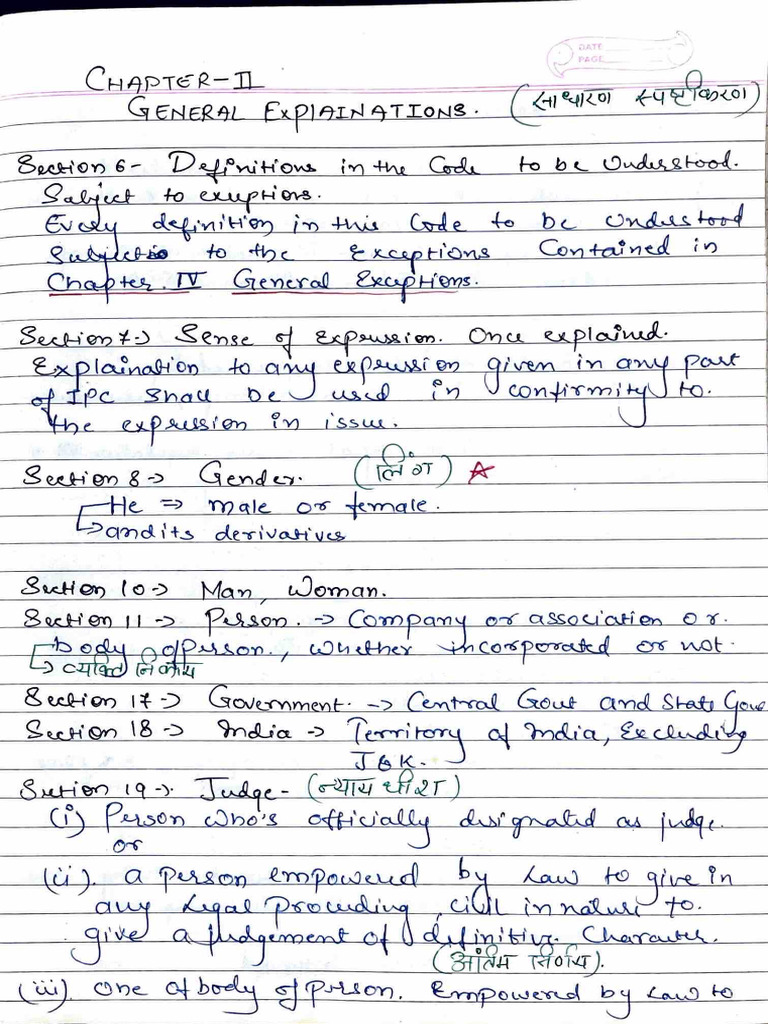 DATE
PAGE
CHAPTER-II
GENERAL EXPlAINATIONS. (साधारण स्पष्टीकरण)
Section 6- Definitions in the Code to be Understood.
Subject to exceptions.
Every definition in this Code to be understood
Subject to the Exceptions Contained in
Chapter IV General Exceptions.
Section 7-> Sense of Expression. Once explained.
Explaination to any expression given in any part
of IPC Shall be used in confirmity to.
the expression in issue.
Section 8-> Gender. (लिंग)
He => male or female.
-> and its derivatives
Section 10-> Man, Woman.
Section 11-> Person. -> Company or association or.
body of person., whether incorporated or not.
-> व्यक्ति निकाय
Section 17-> Government. -> Central Govt and State Gove
Section 18-> India -> Territory of India, Excluding
J&K.
Section 19->. Judge- (न्यायधीश)
(i) Person who's officially designated as judge.
or
(ii). a person empowered by Law to give in
any Legal proceeding, civil in nature to.
give a judgement of definitive Character.
(अंतिम निर्णय).
(iii). One of body of person. Empowered by Law to